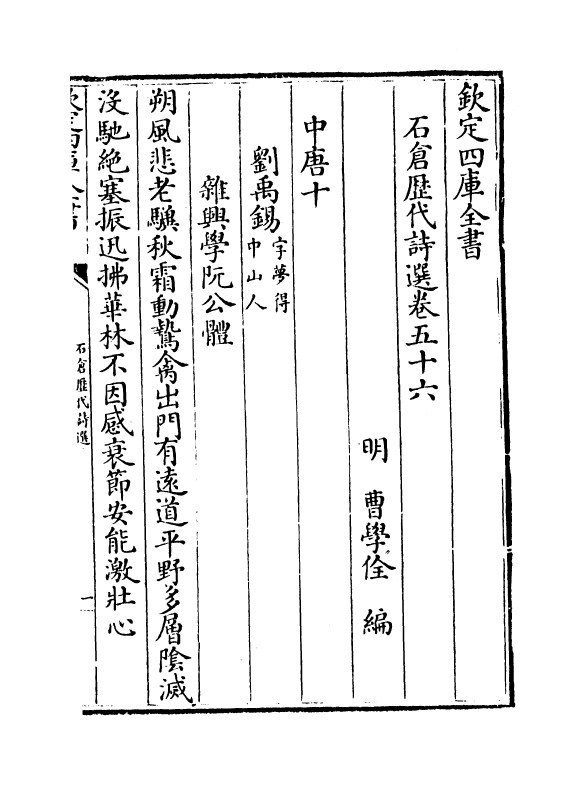 欽定四庫全書
石倉歴代詩選卷五十六
明 曹學佺 編
中唐十
劉禹錫字夢得中山人
雜興學阮公體
朔風悲老驥秋霜動鷙禽出門有遠道平野多層陰滅
沒馳絶塞振迅拂華林不因感衰節安能激壯心
欽定四庫全書
石倉歴代詩選
一